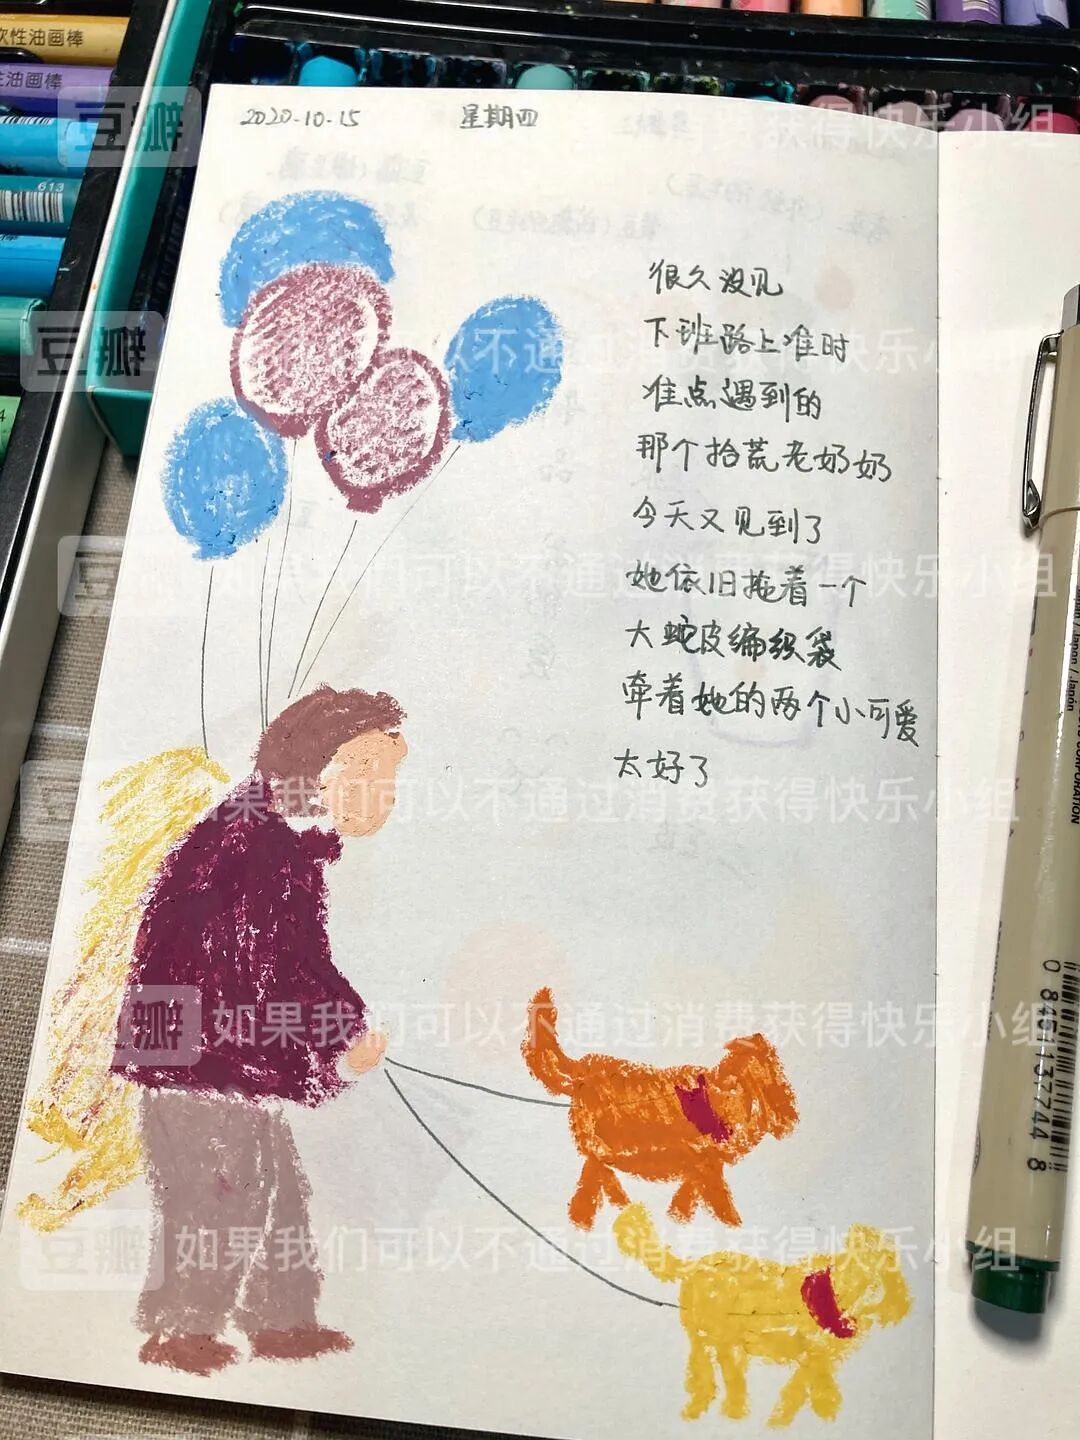 次性油画棒
性油画棒
613
2020-10-15 星期四
很久没见
下班路上准时
准点遇到的
那个拾荒老奶奶
今天又见到了
她依旧掩着一个
大蛇皮编织袋
牵着她的两个小可爱
太好了
豆瓣 获得快乐小组
豆瓣 如果我们可以不通过消费获得快乐小组
豆瓣 如果我们可以不通过消费获得快乐小组
豆瓣 如果我们可以不通过消费获得快乐小组
豆瓣 如果我们可以不通过消费获得快乐小组
豆瓣 如果我们可以不通过消费获得快乐小组
CORPORATION
0 84511 37744 8